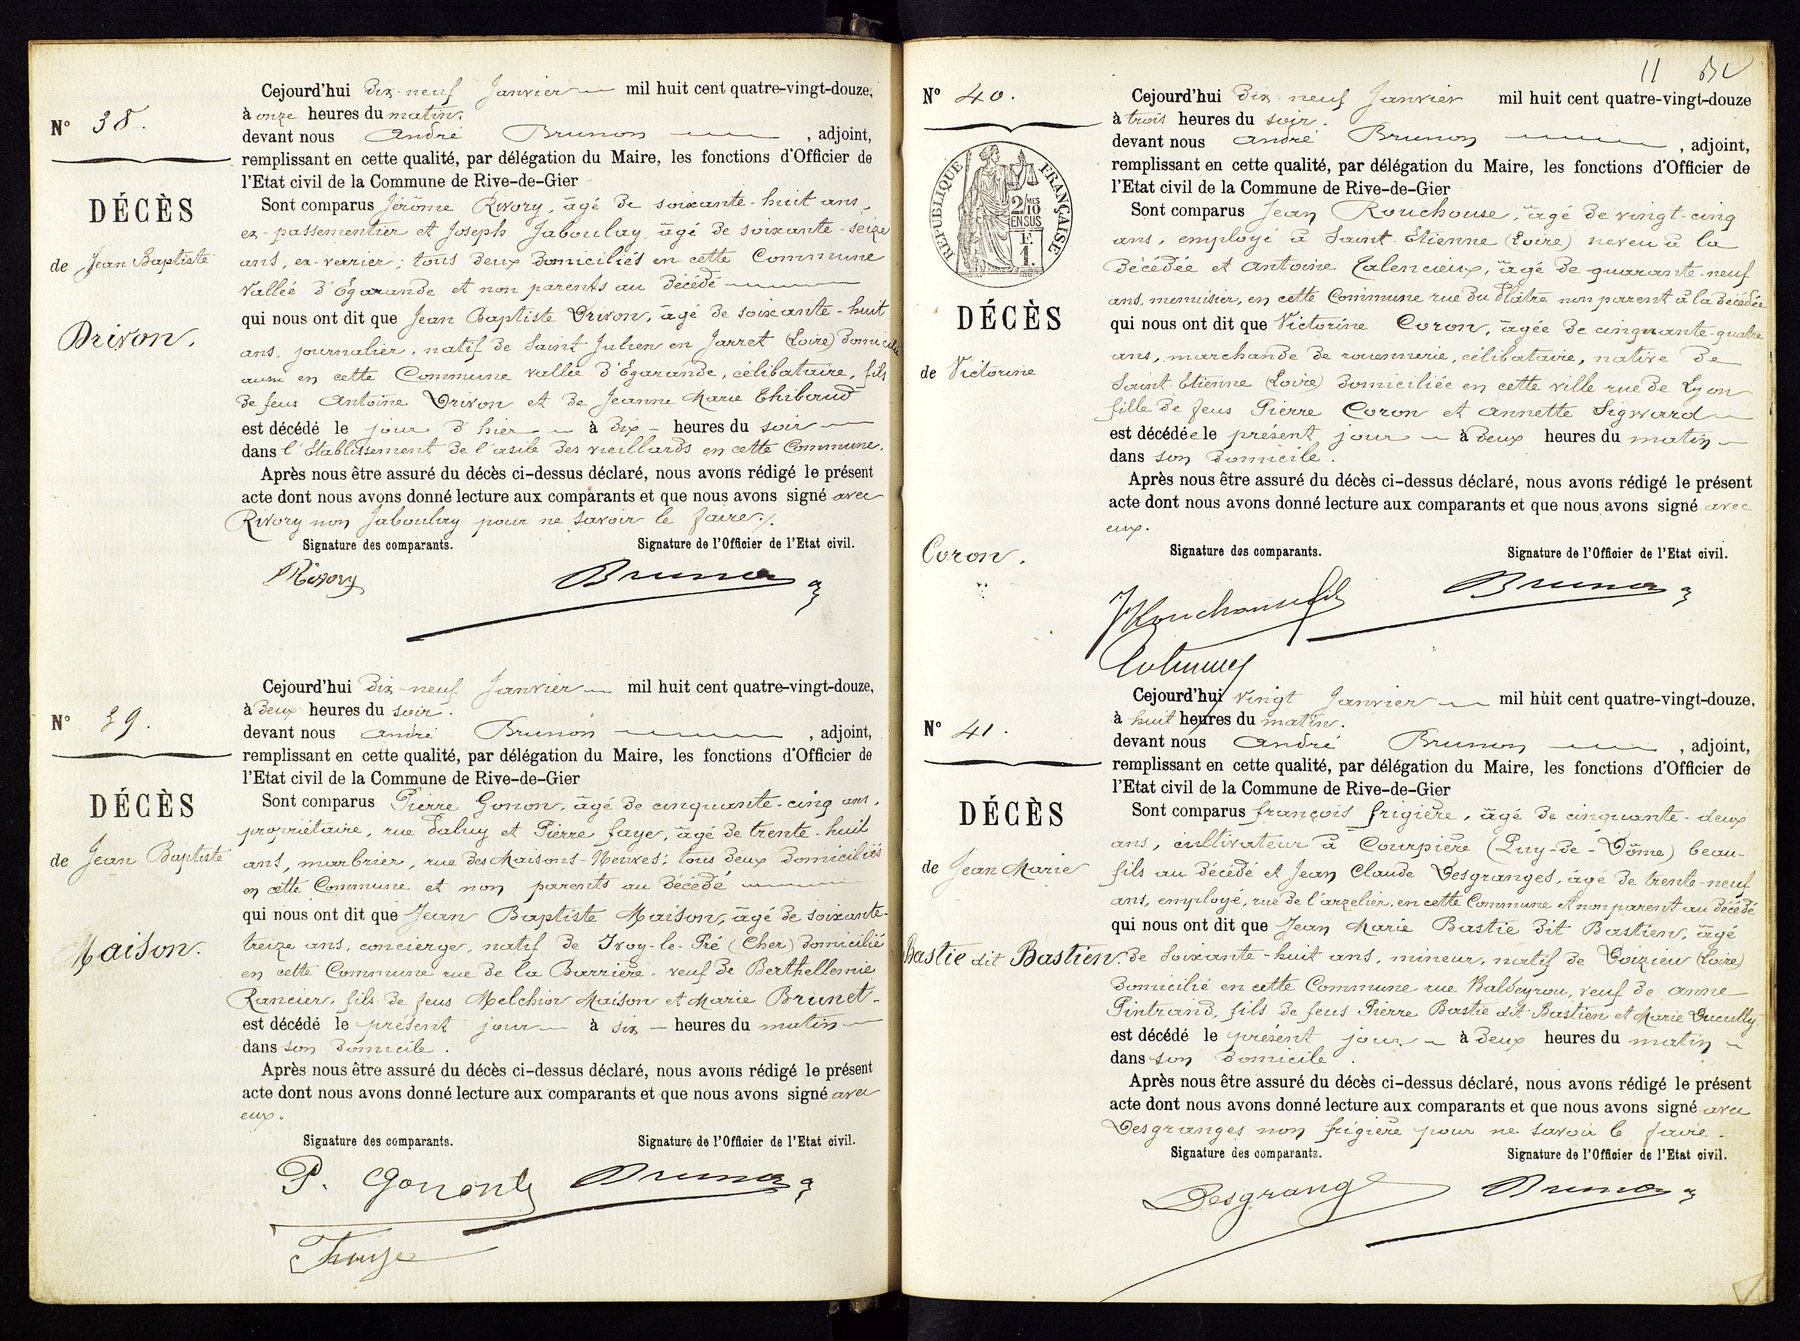 Cejourd'hui dix-neuf Janvier mil huit cent quatre-vingt-douze,
à onze heures du matin.
N° 38.
devant nous André Brunon , adjoint,
remplissant en cette qualité, par délégation du Maire, les fonctions d'Officier de
l'Etat civil de la Commune de Rive-de-Gier
DÉCÈS
Sont comparus Jérôme Rivory, âgé de soixante-huit ans,
ex-passementier et Joseph Jaboulay, âgé de soixante-seize
de Jean Baptiste
ans, ex-verrier; tous deux domiciliés en cette Commune
Vallée d'Égarande et non parents au décédé
Drivon.
qui nous ont dit que Jean Baptiste Drivon, âgé de soixante-huit
ans, journalier, natif de Saint Julien en Jarret (Loire) domicilié
aussi en cette Commune vallée d'Égarande, célibataire, fils
de feus Antoine Drivon et de Jeanne Marie Thibaud
est décédé le jour d'hier à dix heures du soir
dans l'Etablissement de l'asile des vieillards en cette Commune.
Après nous être assuré du décès ci-dessus déclaré, nous avons rédigé le présent
acte dont nous avons donné lecture aux comparants et que nous avons signé avec
Rivory non Jaboulay pour ne savoir le faire./.
Signature des comparants. Signature de l'Officier de l'Etat civil.
Rivory Brunon
Cejourd'hui dix-neuf Janvier mil huit cent quatre-vingt-douze,
à deux heures du soir.
N° 39.
devant nous André Brunon , adjoint,
remplissant en cette qualité, par délégation du Maire, les fonctions d'Officier de
l'Etat civil de la Commune de Rive-de-Gier
DÉCÈS
Sont comparus Pierre Gonon, âgé de cinquante-cinq ans,
propriétaire, rue Paluy et Pierre faye, âgé de trente-huit
de Jean Baptiste
ans, marbrier, rue des Maisons-Neuves; tous deux domiciliés
en cette Commune et non parents au décédé
Maison.
qui nous ont dit que Jean Baptiste Maison, âgé de soixante-
treize ans, concierge, natif de Ivoy-le-Pré (Cher) domicilié
en cette Commune rue de la Barrière, veuf de Berthellemie
Rancier, fils de feus Melchior Maison et Marie Brunet
est décédé le présent jour à six heures du matin
dans son domicile.
Après nous être assuré du décès ci-dessus déclaré, nous avons rédigé le présent
acte dont nous avons donné lecture aux comparants et que nous avons signé avec
eux.
Signature des comparants. Signature de l'Officier de l'Etat civil.
P. Gonon Brunon
11
N° 40.
Cejourd'hui dix-neuf Janvier mil huit cent quatre-vingt-douze
à trois heures du soir.
devant nous André Brunon , adjoint,
remplissant en cette qualité, par délégation du Maire, les fonctions d'Officier de
l'Etat civil de la Commune de Rive-de-Gier
RÉPUBLIQUE FRANÇAISE
2/10MES
EN SUS
1F.
DÉCÈS
Sont comparus Jean Rouchouse, âgé de vingt-cinq
ans, employé à Saint-Etienne (Loire) neveu à la
décédée et Antoine Calencieux, âgé de quarante-neuf
ans, menuisier, en cette Commune rue du Plâtre non parent à la décédée
qui nous ont dit que Victorine Coron, âgée de cinquante-quatre
de Victorine
ans, marchande de rouennerie, célibataire, native de
Saint-Etienne (Loire) domiciliée en cette ville rue de Lyon
fille de feus Pierre Coron et Annette Sigward
est décédée le présent jour à deux heures du matin
dans son domicile.
Après nous être assuré du décès ci-dessus déclaré, nous avons rédigé le présent
acte dont nous avons donné lecture aux comparants et que nous avons signé avec
eux.
Coron.
Signature des comparants. Signature de l'Officier de l'Etat civil.
JRouchouse fils Brunon
Cejourd'hui vingt Janvier mil huit cent quatre-vingt-douze,
à huit heures du matin.
N° 41.
devant nous André Brunon , adjoint,
remplissant en cette qualité, par délégation du Maire, les fonctions d'Officier de
l'Etat civil de la Commune de Rive-de-Gier
DÉCÈS
Sont comparus françois frigière, âgé de cinquante-deux
ans, cultivateur à Courpière (Puy-de-Dôme) beau-
de Jean Marie
fils au décédé et Jean Claude Desgranges, âgé de trente-neuf
ans, employé, rue de l'arzelier, en cette Commune et non parent au décédé
qui nous ont dit que Jean Marie Bastie dit Bastien, âgé
Bastie dit Bastien.
de soixante-huit ans, mineur, natif de Doizieu (Loire)
domicilié en cette Commune rue Valdeyron, veuf de Anne
Pintrand, fils de feus Pierre Bastie dit Bastien et Marie
est décédé le présent jour à deux heures du matin
dans son domicile.
Après nous être assuré du décès ci-dessus déclaré, nous avons rédigé le présent
acte dont nous avons donné lecture aux comparants et que nous avons signé avec
Desgranges non frigière pour ne savoir le faire.
Signature des comparants. Signature de l'Officier de l'Etat civil.
Desgrange Brunon